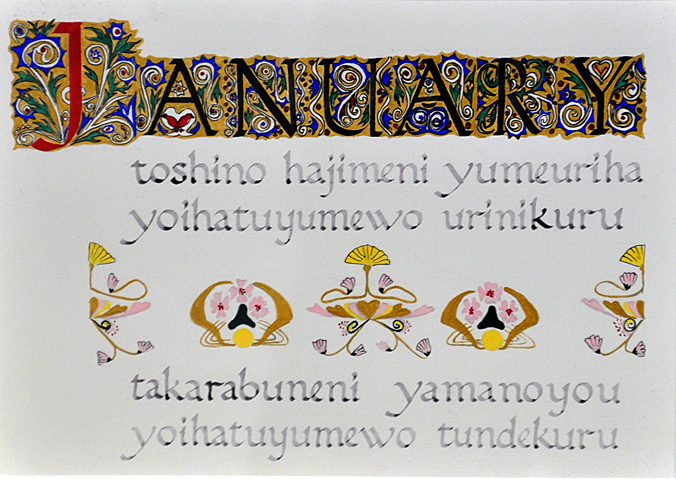 JANUARY
toshino hajimeni yumeuriha
yoihatuyumewo urinikuru
takarabuneni yamanoyou
yoihatuyumewo tundekuru